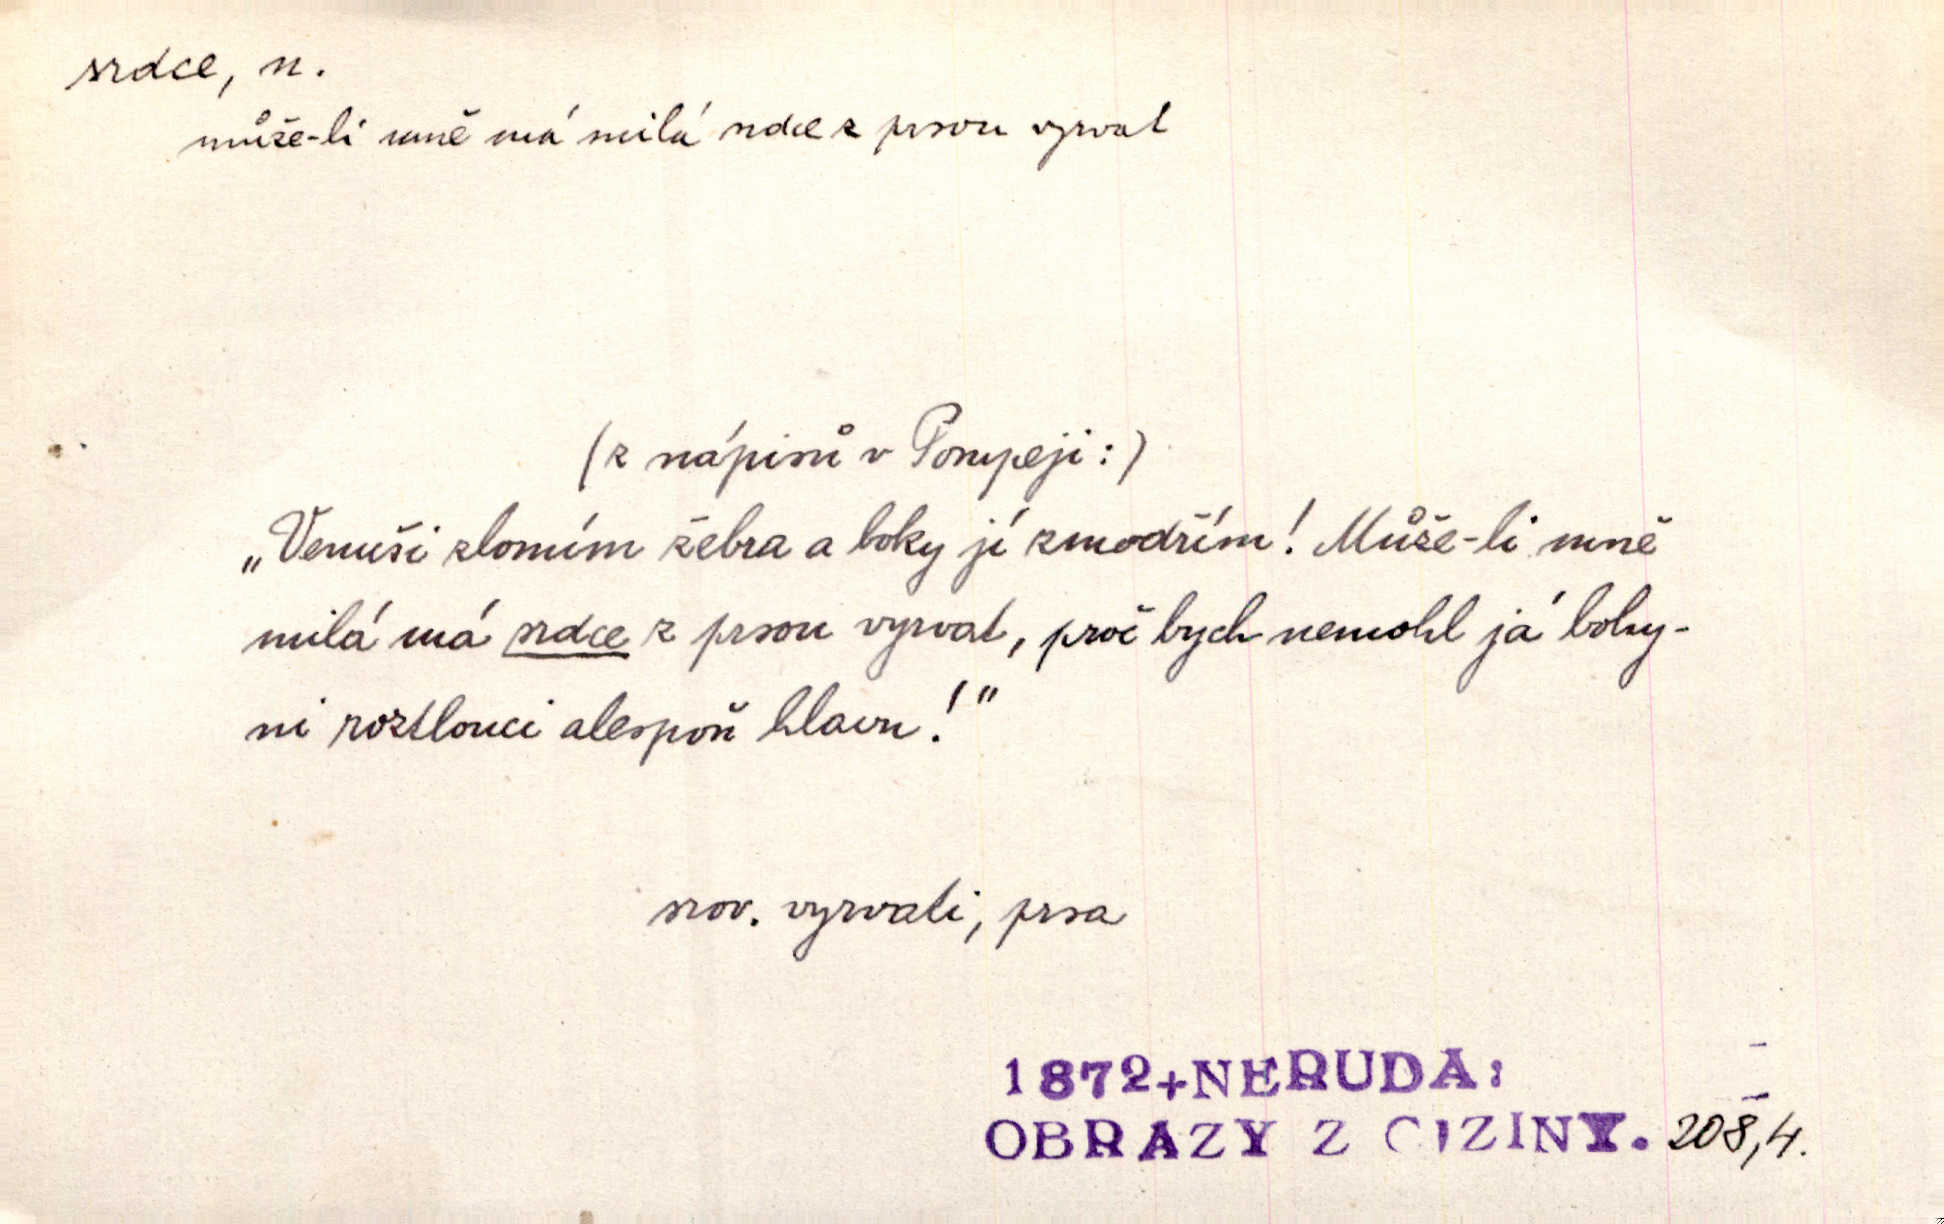 srdce, n.
může-li mně má milá srdce z prsou vyrvat
(z nápisů v Pompeji:)
„Venuši zlomím žebra a boky jí zmodřím! Může-li mně
milá má srdce z prsou vyrvat, proč bych nemohl já bohy-
ni roztlouci alespoň hlavu!"
srov. vyrvati, prsa
1872+NERUDA:
OBRAZY Z CIZINY. 208,4.